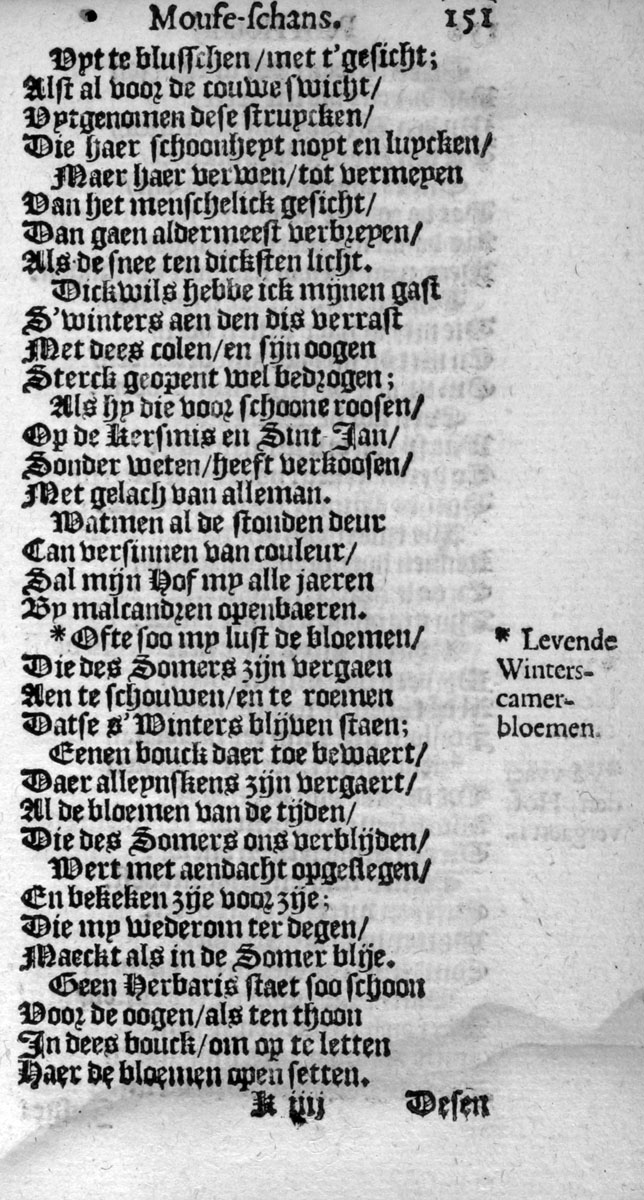 Moufe-schans. 151
Uyt te blusschen/met t'gesicht;
Alst al voor de couwe swicht/
Uytgenomen dese struycken/
Die haer schoonheyt noyt en luycken/
Maer haer verwen/tot vermeyen
Van het menschelick gesicht/
Dan gaen aldermeest verbreyen/
Als de snee ten dicksten licht.
Dickwils hebbe ick mijnen gast
S'winters aen den dis verrast
Met dees colen/en sijn oogen
Sterck geopent wel bedrogen;
Als hy die voor schoone roosen/
Op de Kersmis en Sint Jan/
Sonder weten/heeft verkoosen/
Met gelach van alleman.
Watmen al de stonden deur
Can versinnen van couleur/
Sal mijn Hof my alle jaeren
By malcandren openbaeren.
* Ofte soo my lust de bloemen/
Die des Somers zijn vergaen
Aen te schouwen/en te roemen
Datse s'Winters blijven staen;
Eenen bouck daer toe bewaert/
Daer alleynskens zijn vergaert/
Al de bloemen van de tijden/
Die des Somers ons verblijden/
Wert met aendacht opgeslegen/
En bekeken zije voor zije;
Die my wederom ter degen/
Maeckt als in de Somer blije.
Geen Herbaris staet soo schoon
Voor de oogen/als ten thoon
In dees bouck/om op te letten
Haer de bloemen open setten.
* Levende
Winters-
camer-
bloemen.
K iiij Desen